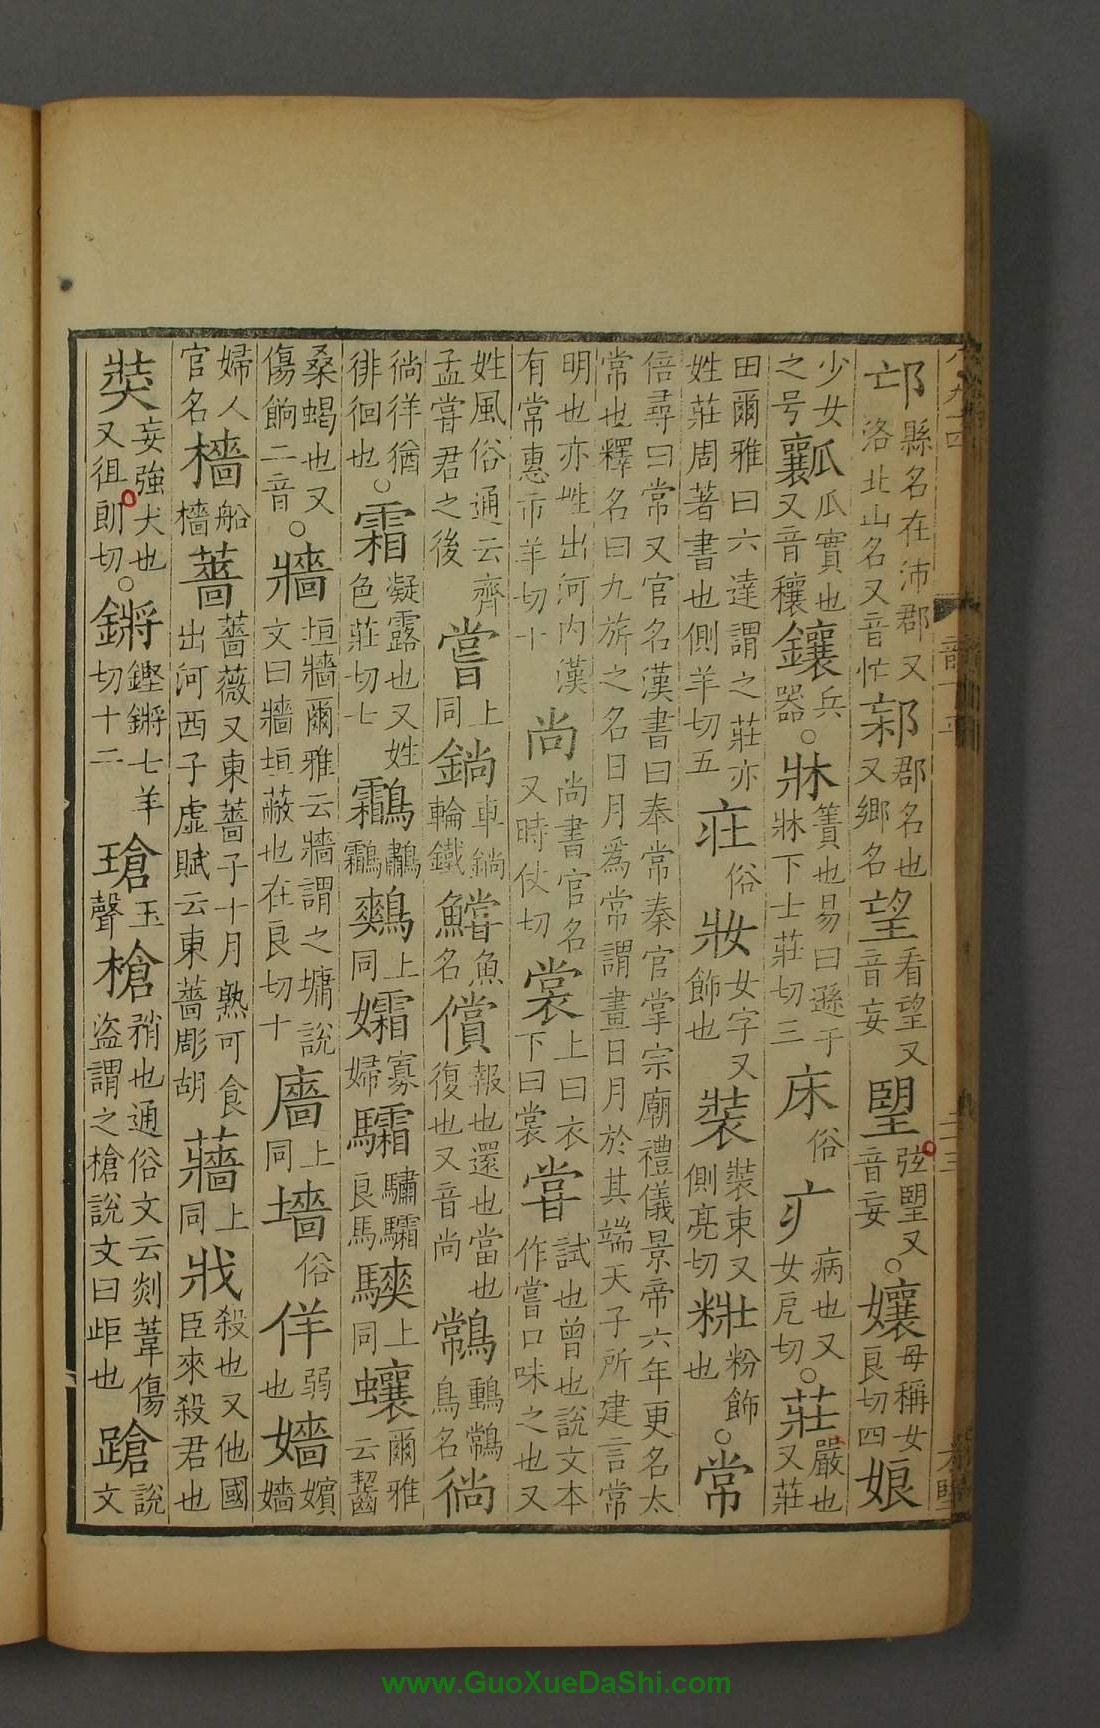 邙縣名在沛郡又洛北山名又音忙䣃郡名也又鄉名望看望又音妄朢弦朢又音妄○孃母稱女良切四娘
少女之号瓤瓜實也又音穰鑲兵器○牀簀也易曰遜于牀下士莊切三床俗疒病也又女戹切○莊嚴也又莊
田爾雅曰六達謂之莊亦姓莊周著書也側羊切五疘俗妝女字又飾也裝裝束又側亮切粧粉飾也○常
倍尋曰常又官名漢書曰奉常秦官掌宗廟禮儀景帝六年更名太常也釋名曰九旂之名日月爲常謂畫日月於其端天子所建言常
明也亦姓出河内漢有常惠市羊切十尚尚書官名又時仗切裳上曰衣下曰裳甞試也曾也說文本作嘗口味之也又
姓風俗通云齊孟甞君之後嘗上同鋿車鋿輪鐵鱨魚名償報也還也當也復也又音尚鷐鸓鷐鳥名徜
徜徉猶徘徊也○霜凝露也又姓色莊切七鸘鷫鸘鷞上同孀寡婦驦驌驦良馬騻上同蠰爾雅云齧
桑蝎也又傷餉二音○牆垣牆爾雅云牆謂之墉說文曰牆垣蔽也在良切十廧上同墻俗㟄弱也嬙嬪嬙
婦人官名檣船檣薔薔薇又東薔子十月熟可食出河西子虛賦云東薔彫胡蘠上同戕殺也又他國臣來殺君也
奘妄強犬也又徂朗切○鏘鏗鏘七羊切十二瑲玉聲槍矟也通俗文云剡葦傷盜謂之槍說文曰歫也蹌說文
www.GuoXueDaShi.com